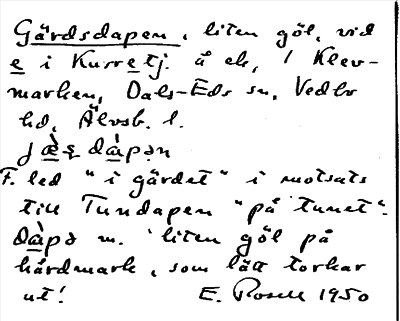 Gärdsdapen, liten göl, vid
e i Kurretj. å ek, i Klev-
marken, Dals-Eds sn, Vedbo
hd, Älvsb. l.
dàpən
F. led "i gärdet" i motsats
till Tundapen "på tunet".
dàpə m. 'liten göl på
hårdmark, som lätt torkar
ut'. E. Rosell 1950